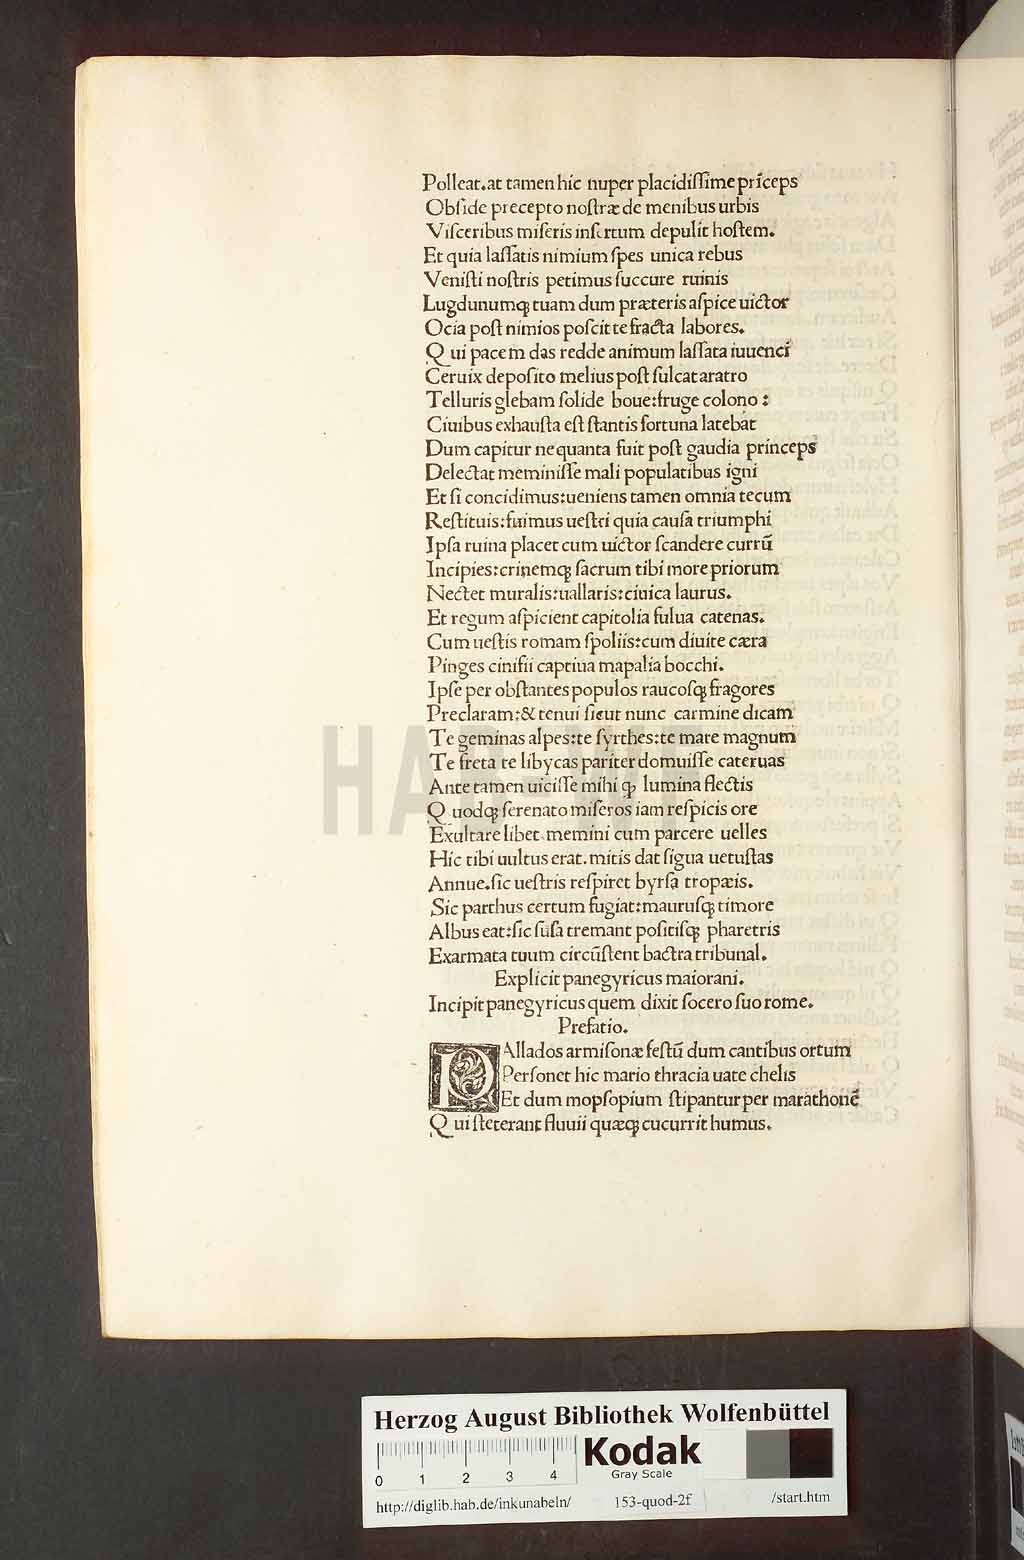 Polleat.at tamen hic nuper placidiſſime prīceps
Obſide precepto noſtræ de menibus urbis
Viſceribus miſeris inſertum depulit hoſtem.
Et quia laſſatis nimium ſpes unica rebus
Veniſti noſtris petimus ſuccure ruinis
Lugdunumqꝫ tuam dum præteris aſpice uictor
Ocia poſt nimios poſcit te fracta labores.
Qui pacem das redde animum laſſata iuuenci
Ceruix depoſito melius poſt ſulcat aratro
Telluris glebam ſolide boue:fruge colono:
Ciuibus exhauſta eſt ſtantis fortuna latebat
Dum capitur ne quanta fuit poſt gaudia princeps
Delectat meminiſſe mali populatibus igni
Et ſi concidimus:ueniens tamen omnia tecum
Reſtituis:fuimus ueſtri quia cauſa triumphi
Ipſa ruina placet cum uictor ſcandere currū
Incipies:crinemqꝫ ſacrum tibi more priorum
Nectet muralis:uallaris:ciuica laurus.
Et regum aſpicient capitolia fulua catenas.
Cum ueſtis romam ſpoliis:cum diuite cæra
Pinges cinifii captiua mapalia bocchi.
Ipſe per obſtantes populos raucoſqꝫ fragores
Preclaram:& tenui ſicut nunc carmine dicam
Te geminas alpes:te ſyrthes:te mare magnum
Te freta te libycas pariter domuiſſe cateruas
Ante tamen uiciſſe mihi qꝫ lumina flectis
Quodqꝫ ſerenato miſeros iam reſpicis ore
Exultare libet.memini cum parcere uelles
Hic tibi uultus erat.mitis dat ſigua uetuſtas
Annue.ſic ueſtris reſpiret byrſa tropæis.
Sic parthus certum fugiat:mauruſqꝫ timore
Albus eat:ſic ſuſa tremant poſitiſqꝫ pharetris
Exarmata tuum circūſtent bactra tribunal.
Explicit panegyricus maiorani.
Incipit panegyricus quem dixit ſocero ſuo rome.
Prefatio.
PAllados armiſonæ feſtū dum cantibus ortum
Perſonet hic mario thracia uate chelis
Et dum mopſopium ſtipantur per marathonē
Qui ſteterant fluuii quæqꝫ cucurrit humus.
HAB-WF
Herzog August Bibliothek Wolfenbüttel
0 1 2 3 4
Kodak
Gray Scale
http://diglib.hab.de/inkunabeln/ 153-quod-2f /start.htm